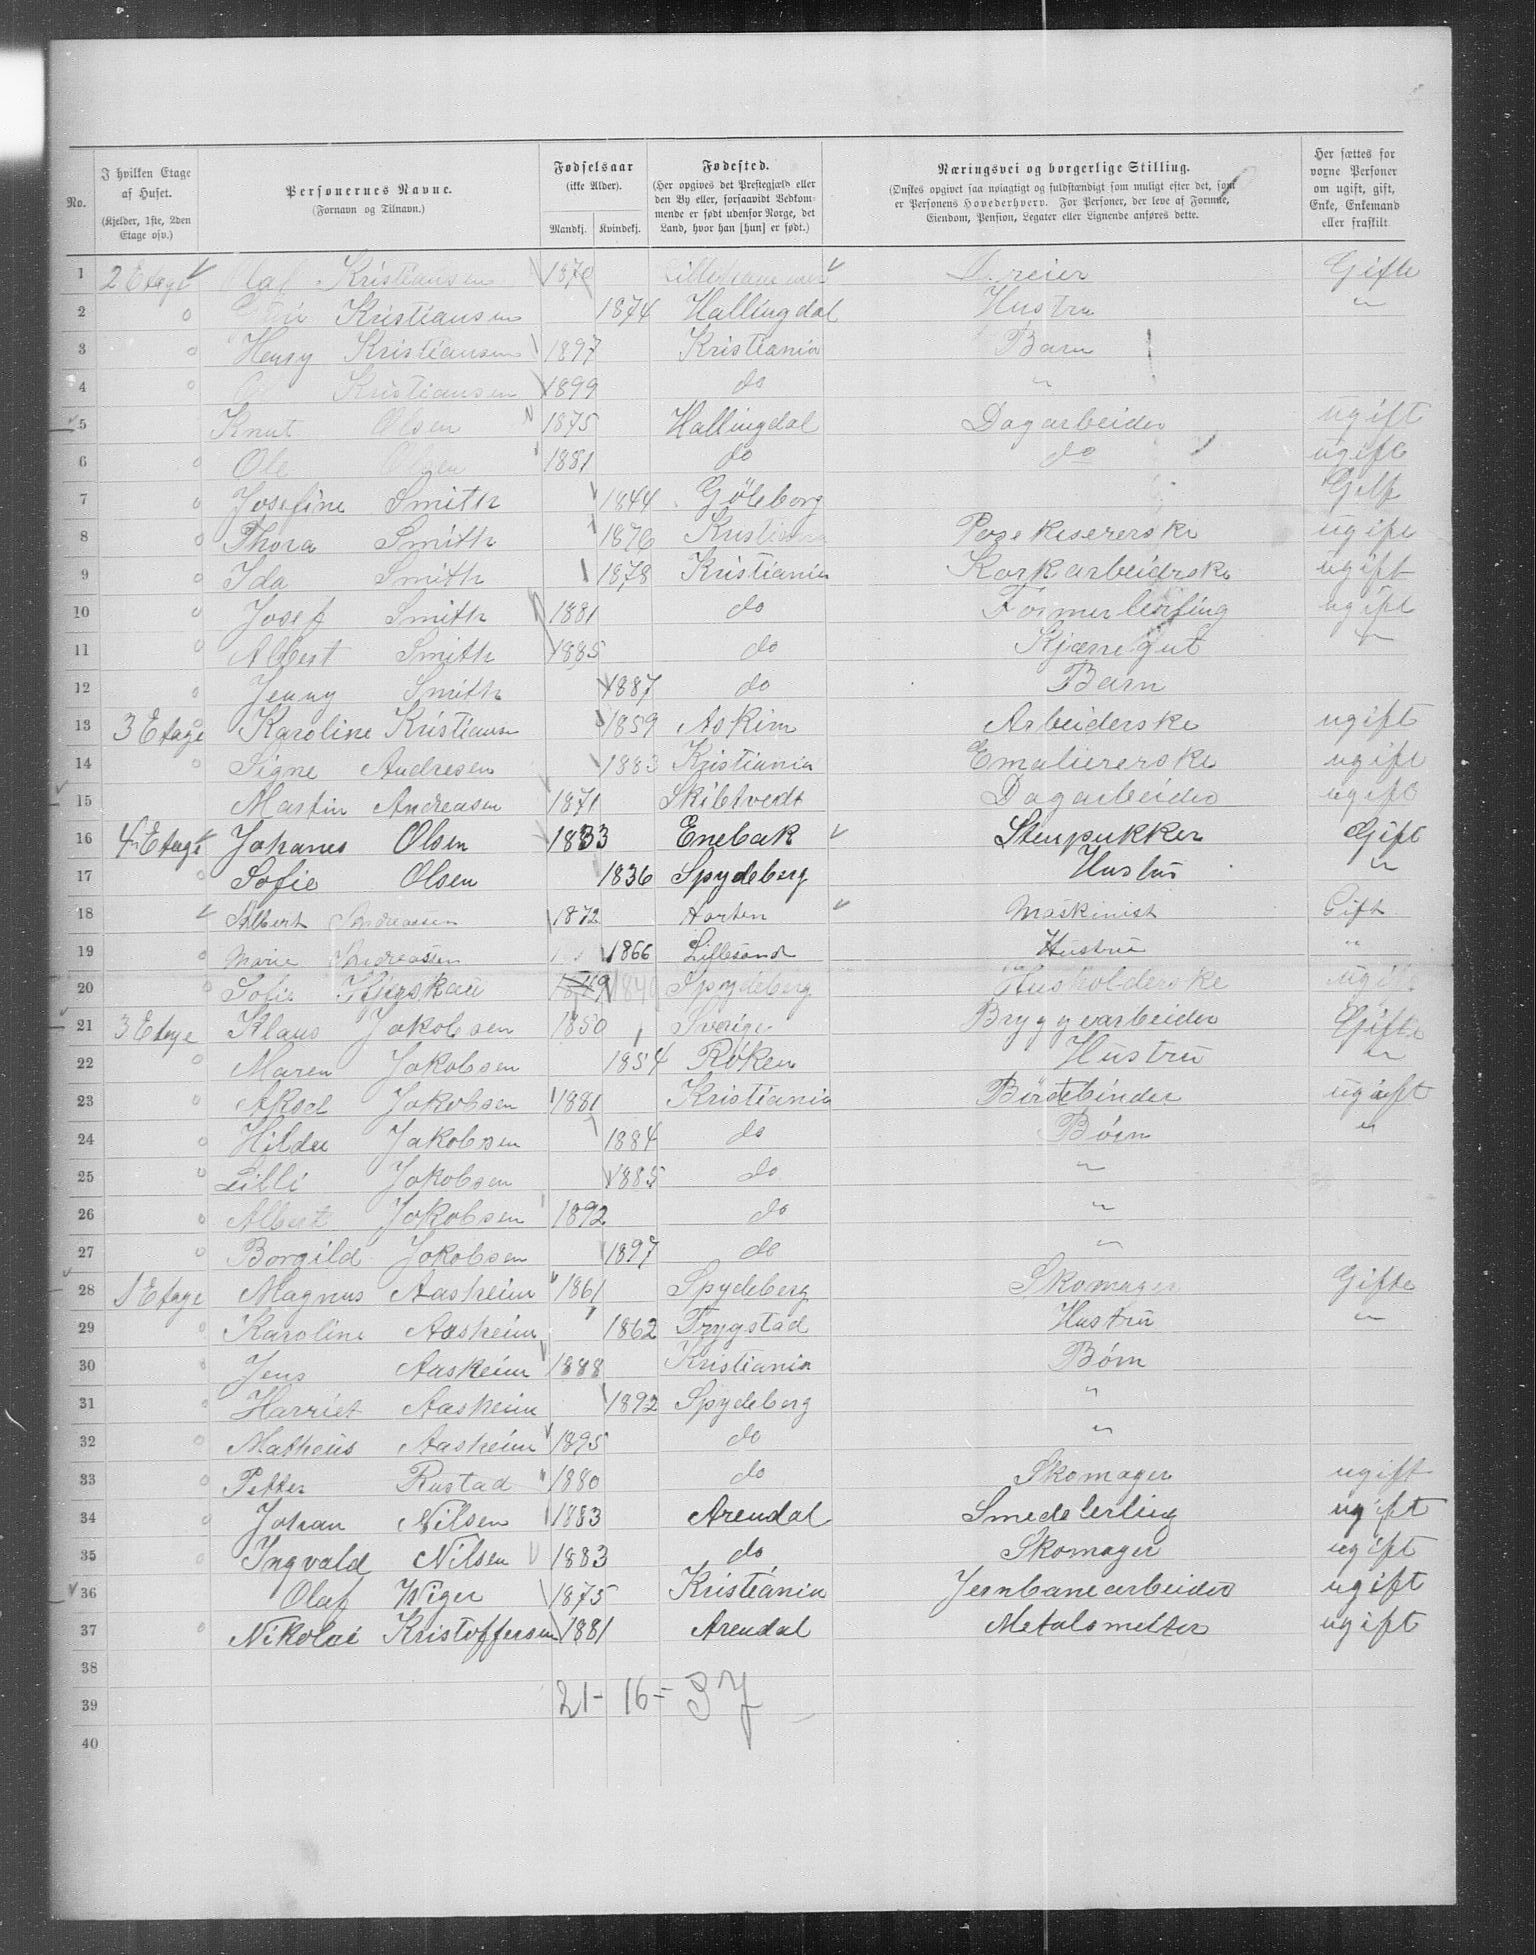 No.	I hvilken Etage af Huset. (Kjelder, 1ste, 2den Etage osv.)	Personernes Navne. (Fornavn og Tilnavn.)	Fødselsaar (ikke Alder). Mandkj. Kvindekj.	Fødested. (Her opgives det Prestegjæld eller den By eller, forsaavidt Vedkommende er født udenfor Norge, det Land, hvor han [hun] er født.)	Næringsvei og borgerlige Stilling. (Ønskes opgivet saa nøiagtigt og fuldstændigt som muligt efter det, som er Personens Hovederhverv. For Personer, der leve af Formue, Eiendom, Pension, Legater eller Lignende anføres dette.	Her sættes for vorne Personer om ugift, gift, Enke, Enkemand eller fraskilt
1 2 Etage Kristiansen 1870 Lillehammer Dreier Gifte
2 Kristiansen 1874 Hallingdal Hustru "
3 Henry Kristiansen 1897 Kristiania Barn
4 Kristiansen 1899 do "
5 Knut Olsen 1875 Hallingdal Dagarbeider ugift
6 Ole Olsen 1881 do do ugift
7 Josefine Smith 1844 Gøteborg Gift
8 Thora Smith 1876 Kristiania ugift
9 Ida Smith 1878 Kristiania Korkarbeiderske ugift
10 Josef Smith 1881 do Formerlærling ugift
11 Albert Smith 1885 do Kjøregut "
12 Jenny Smith 1887 do Barn
13 3 Etage Karoline Kristiansen 1859 Askim Arbeiderske ugift
14 Signe Andresen 1883 Kristiania Emaliererske ugift
15 Martin Andreasen 1871 Skibtvedt Dagarbeider ugift
16 4 Etage Johanes Olsen 1833 Enebak Stenpukker Gift
17 Sofie Olsen 1836 Spydeberg Hustru "
18 Albert Andreassen 1872 Horten Maskinist Gift
19 Marie Andreassen 1866 Lillesand Hustru "
20 Sofie 1849 Spydeberg Husholderske ugift
21 3 Etage Klaus Jakobsen 1850 Sverige Bryggearbeider Gifte
22 Maren Jakobsen 1854 Røken Hustru "
23 Aksel Jakobsen 1881 Kristiania Børstebinder ugift
24 Hilda Jakobsen 1884 do Børn "
25 Lilli Jakobsen 1885 do "
26 Albert Jakobsen 1892 do "
27 Borgild Jakobsen 1897 do "
28 1 Etage Magnus Aasheim 1861 Spydeberg Skomager Gifte
29 Karoline Aasheim 1862 Trygstad Hustru "
30 Jens Aasheim 1888 Kristiania Børn
31 Harriet Aasheim 1892 Spydeberg "
32 Matheus Aasheim 1895 do "
33 Petter Rustad 1880 do Skomager ugift
34 Johan Nilsen 1883 Arendal Smedelerling ugift
35 Ingvald Nilsen 1883 do Skomager ugift
36 Olaf Wiger 1875 Kristiania Jernbanearbeider ugift
37 Nikolai Kristoffersen 1881 Arendal Metalsmelter ugift
38
39 21 - 16 = 37
40